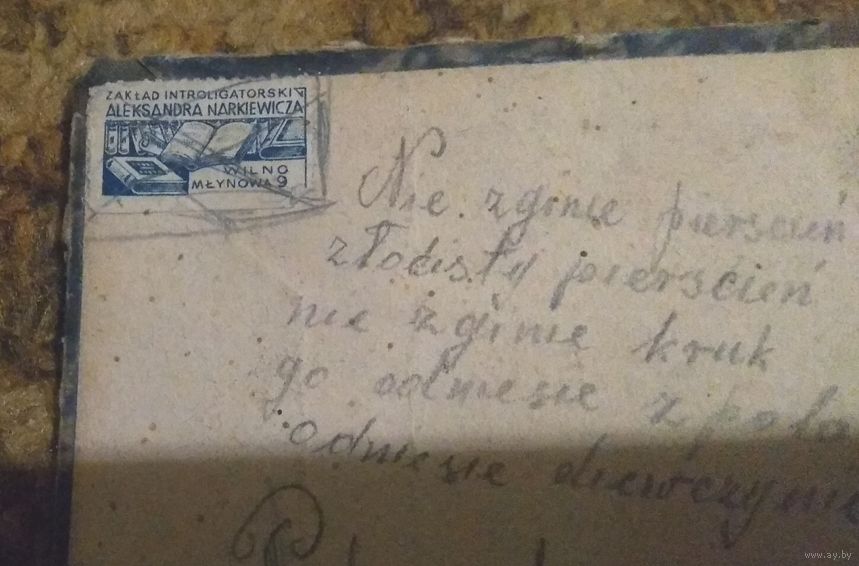 ZAKŁAD INTROLIGATORSKI
ALEKSANDRA NARKIEWICZA
WILNO
MŁYNOWA 9
Nie zginie pierscień
złocisty pierścień
nie zginie kruk
go odniesie z pola
odniesie dziewczynie
www.ay.by